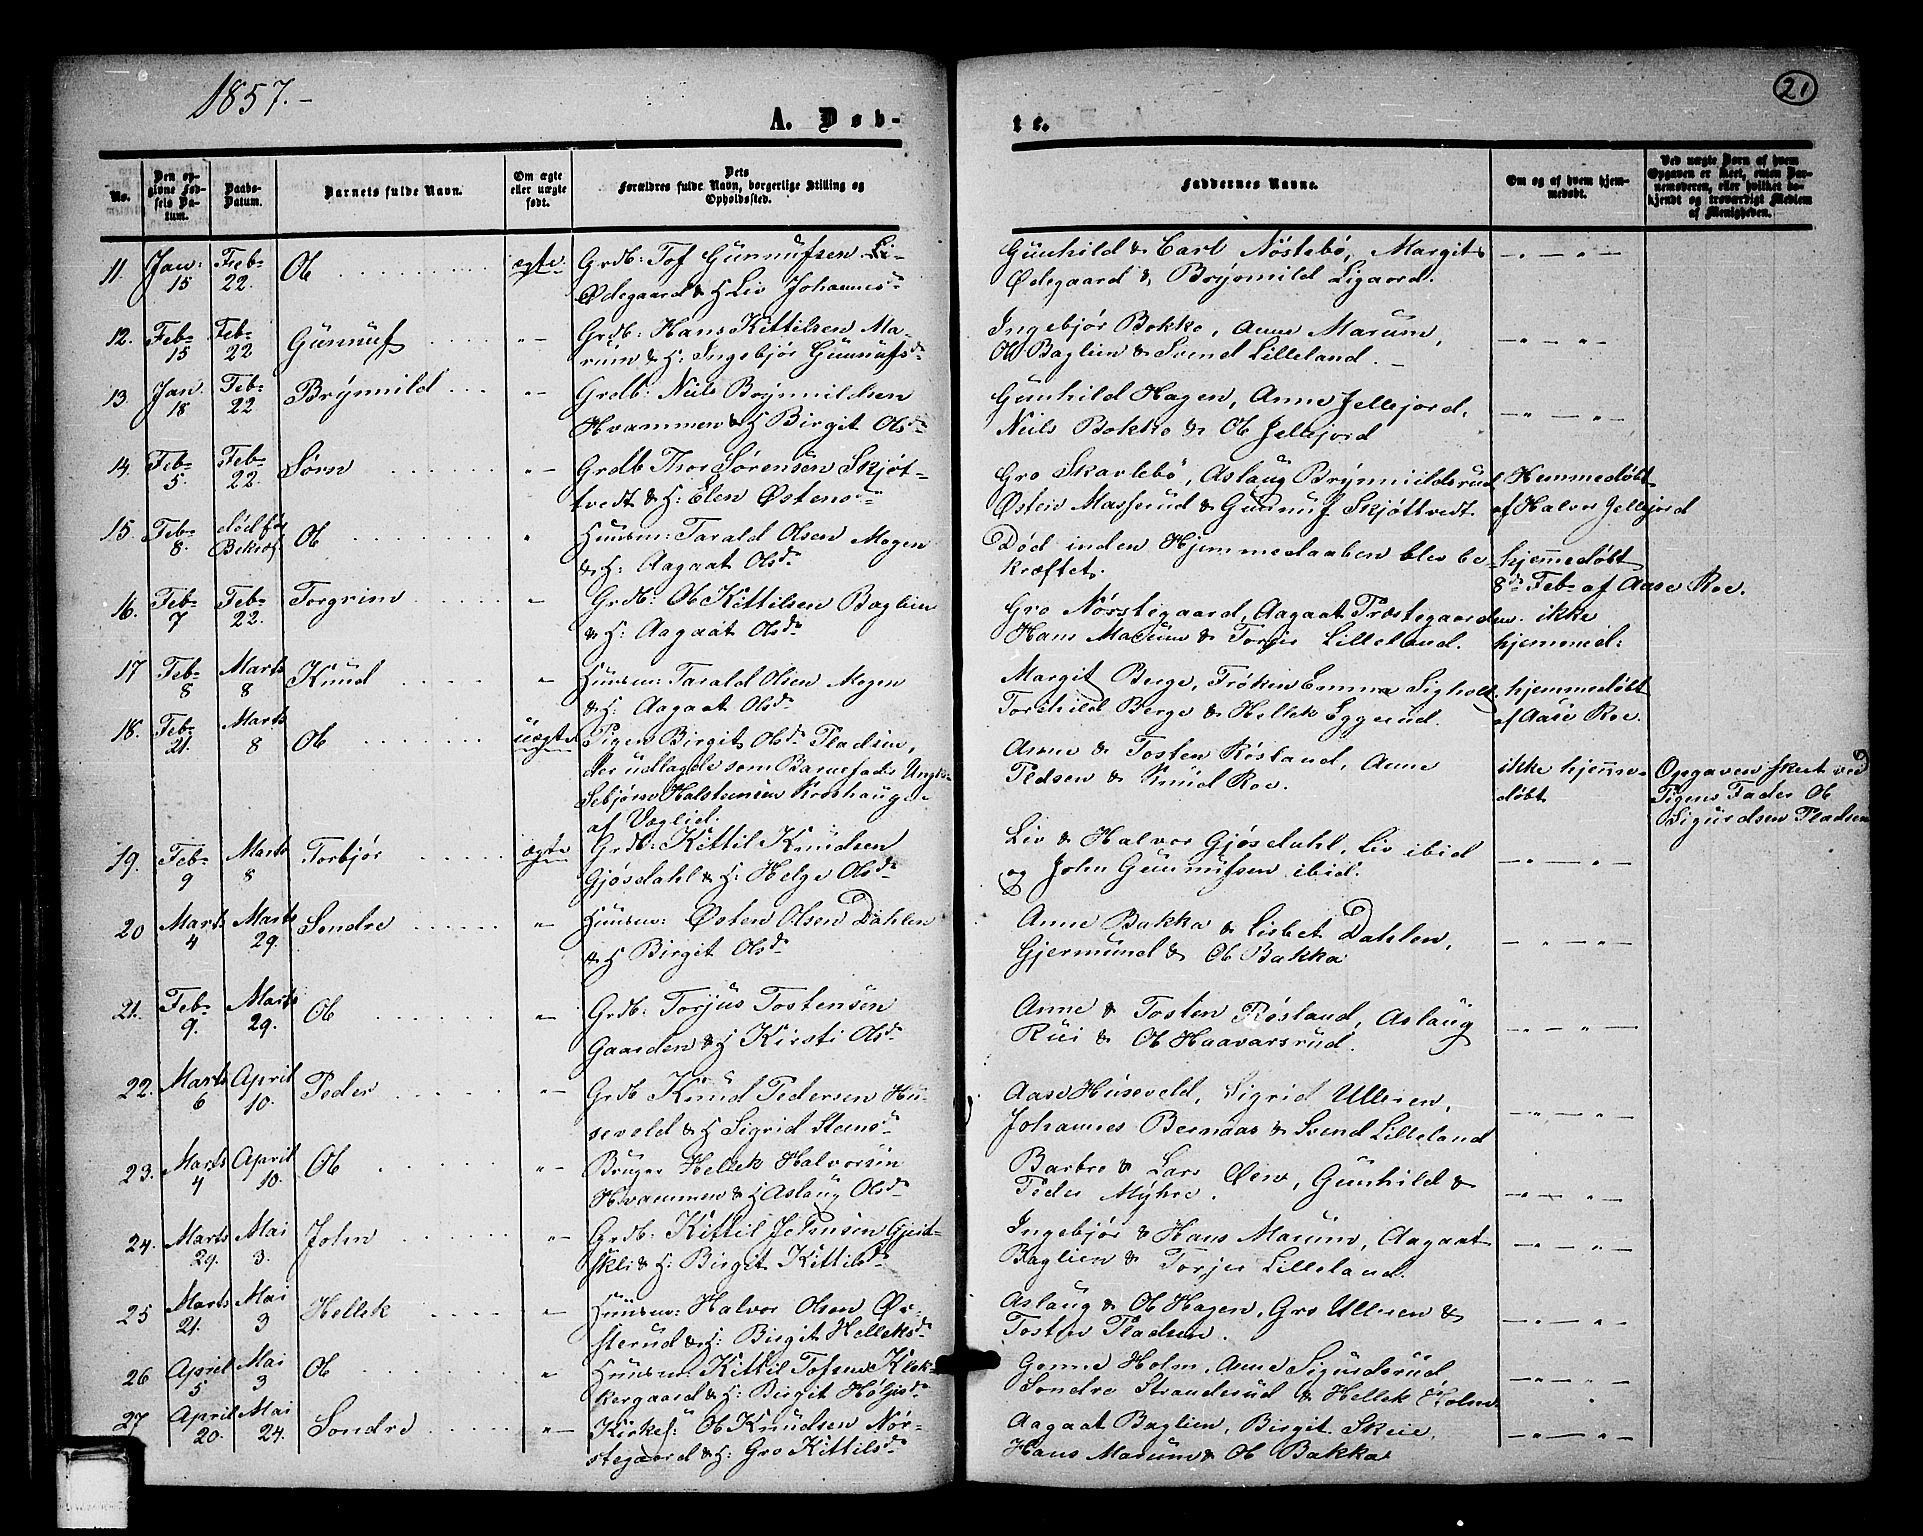 1857.-
21
A. Døb-
te.
No.
Den op-
givne Fød-
sels Da-
tum.
Daabs-
Datum.
Barnets fulde Navn.
Om ægte
eller uægte
født.
Dets
Forældres fulde Navn, borgerlige Stilling og
Opholdssted.
Faddernes Navne.
Om og af hvem hjem-
medøbt.
Ved uægte Børn af hvem
Opgaven er skeet, enten Bar-
nemoderen, eller hvilket be-
kjendt og troværdigt Medlem
af Menigheden.
11. Jan: 15 Feb- 22. Ol ægte Grdb: Tof Gunnufsen Li-
Ødegaard & H Liv Johannesd
Gunhild & Carl Nøstebø, Margit
Ødegaard & Brynmild Ligaard.
12. Feb- 15 Feb- 22 Gunnuf Grdb: Hans Kittilsen Ma-
rum & H: Ingebjør Gunnufsd
Ingebjør Bokko, Anne Marum,
Ol Baglien & Svend Lilleland.
13. Jan. 18 Feb- 22 Brynmild Grdb: Niels Brynmildsen
Hvammen & H Birgit Olsd
Gunhild Hagen, Anne Jellejord,
Niels Bokko & Ol Jellejord
14. Feb- 5. Feb- 22. Sørn Grdb Thor Sørensen Skjøt-
tvedt & H: Elen Østensd
Gro Skavlebø, Aslaug Brynmildsrud
Østen Massrud & Gunnuf Skjøttvedt.
Hemmedøbt
af Halvor Jellejord
15. Feb- 8. død før Bekræf. Ol Huusm: Tarald Olsen Mogen
& H: Aagaat Olsd
Død inden Hjemmedaaben blev be-
kræftet.
hjemmedøbt
8de Feb- af Aase Roe.
16. Feb- 7 Feb- 22. Torgrim Grdb: Ol Kittilsen Baglien
& H: Aagaat Olsd
Gro Nørstegaard, Aagaat Træstegaarden.
Hans Marum & Torjus Lilleland.
ikke
hjemmed:
17 Feb- 8 Marts 8 Knud Huusm: Tarald Olsen Mogen
& H: Aagaat Olsd
Margit Berge, Frøken Emma Sigholt,
Torshild Berge & Hellek Eggerud.
hjemmedøbt
af Aase Roe.
18. Feb- 21. Marts 8 Ol uægte Pigen Birgit Olsd Pladsen,
der udlagde som Barnefader Ungk.
Sebjørn Halsteinsen Kroshaug
af Væglid.
Anne & Tosten Røsland, Anne
Pladsen & Knud Roe.
ikke hjemme-
døbt
Opgaven skeet ved
Pigens Fader Ol
Sigurdsen Pladsen
19. Feb- 9 Marts 8 Torbjør ægte Grdb: Kittil Knudsen
Gjøsdahl & H: Helge Olsd
Liv & Halvor Gjøsdahl, Liv ibid
og John Gunnufsen ibid.
20 Marts 4 Marts 29. Sondre Huusm: Østen Olsen Dahlen
& H Birgit Olsd
Anne Bakka & Lisbet Dahlen,
Gjermund & Ol Bakka
21. Feb- 9. Marts 29. Ol Grdb: Torjus Tostensen
Gaarden & H Kirsti Olsd
Anne & Tosten Røsland, Aslaug
Rui & Ol Haavarsrud.
22. Marts 6 April 10. Peder Grdb Knud Pedersen Hu-
seveld & H Sigrid Steensd
Aase Huseveld, Sigrid Ulleren,
Johannes Bernaas & Svend Lilleland
23. Marts 4 April 10. Ol Bruger Hellek Halvorsen
Hvammen & H Aslaug Olsd
Barbro & Lars Øen, Gunhild &
Peder Myhre.
24. Marts 29. Mai 3. John Grdb: Kittil Johnsen Gjeit-
skli & H: Birgit Kittilsd
Ingebjør & Hans Marum, Aagaat
Baglien & Torjus Lilleland.
25 Marts 21. Mai 3 Hellek Huusm: Halvor Olsen Øv-
sterud & H: Birgit Helleksd
Aslaug & Ol Hagen, Gro Ulleren &
Tosten Pladsen.
26 April 5 Mai 3 Ol Huusm: Kittil Tofsen Klek-
kergaard & H: Birgit Holjisd
Gonne Holm, Anne Sigurdsrud
Sondre Stranderud & Hellek Holm
27 April 20. Mai 24. Sondre Kirkes: Ol Knudsen Nør-
stegaard & H: Gro Kittilsd
Aagaat Baglien, Birgit Skeie,
Hans Marum & Ol Bakka